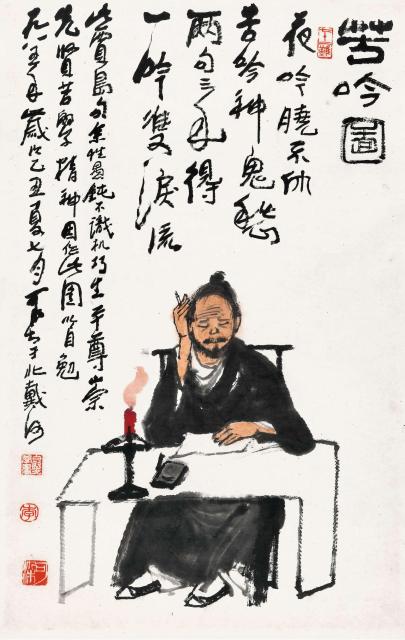 苦吟圖
夜吟曉不休
苦吟神鬼愁
兩句三年得
一吟雙淚流
此賈島句余性愚鈍不識机巧生平尊崇
先賢苦學精神因作此圖以自勉
一九八五年歲次乙丑夏七月可染於北戴河
李
可染